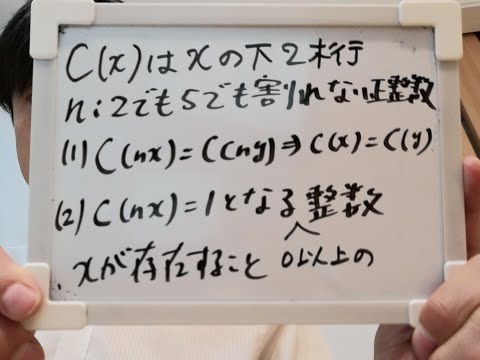 C(x)はxの下2桁行
n:2でも5でも割れない正整数
(1) C(nx)=C(ny)⇒C(x)=C(y)
(2) C(nx)=1となる整数
xが存在すること 0以上の